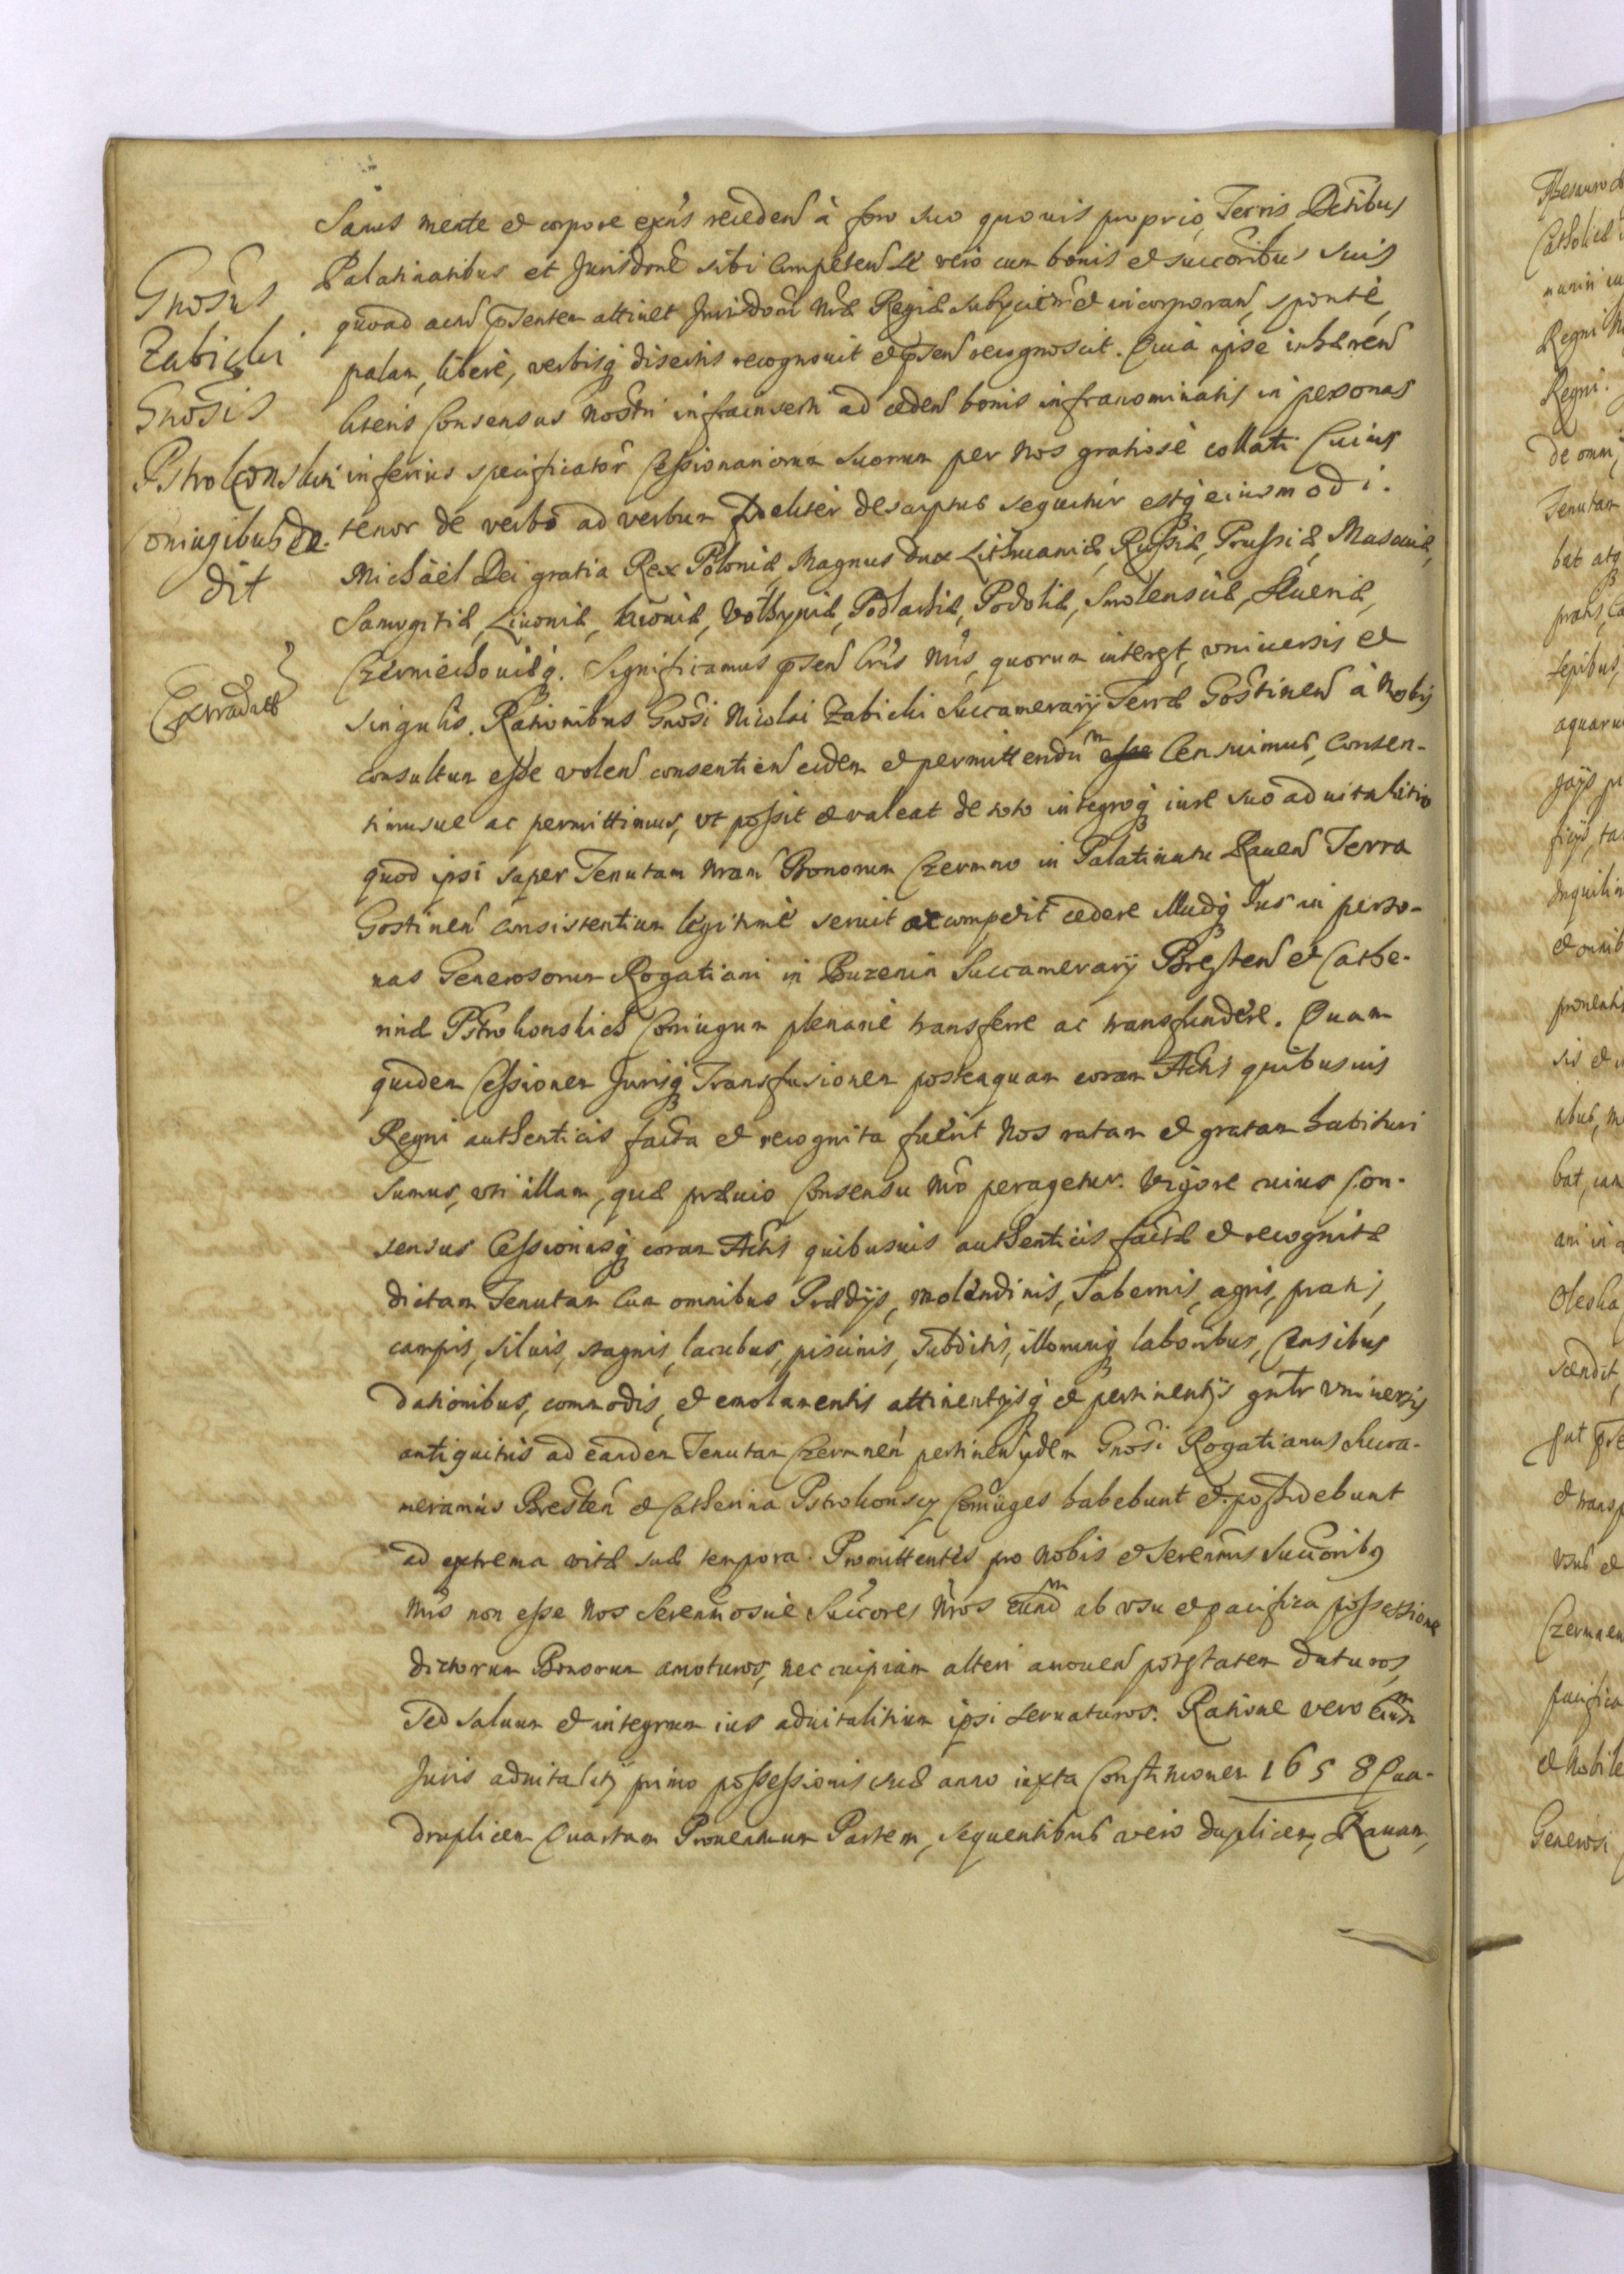 Sanus mente et corpore exñs recedeñ à foro suo quovis proprio, Terris, Dctibus
Palatinatibus et Jurisdone sibi competeñ se vero cum bonis et succoribus suis
quoad actũ psentem attinet Jurisdoni nrae Regiae subyciens et incorporañ, sponte,
palam, libere, verbisq disertis recognovit et pseñ recognoscit. Quia ipse inhaereñ
literis Consensus nostri infrainserti ad cedeñ bonis infranominatis in personas
inferius specificator Cessionariorum suorum per nos gratiose collati Cuius
tenor de verbo ad verbum fideliter descriptus sequitur estq eiusmodi.
Michäel Dei gratia Rex Poloniae, Magnus Dux Lithuaniae, Russiae, Prussiae, Masoviae,
Samogitiae, Livoniae, Kioviae, Volhyniae, Podlachiae, Podoliae, Smolensciae, Severiae,
Czerniechoviaeq. Significamus pseñ lris nris, quorum interest, vniversis et
singulis. Rationibus Gnosi Nicolai Zabicki Succamerarij Terrae Gostineñ à Nobis
consultum esse voleñ consentieñ eidem et permittendum Censuimus, Consen-
timusue ac permittimus, vt possit et valeat de toto integroq iure suo advitalitio
quod ipsi super Tenutam nram Bonorum Czermno in Palatinatu Raveñ Terra
Gostineñ consistentium legitime servit ac competit cedere illudq Jus in perso-
nas Generosorum Rogatiani in Buzenin Succamerarij Bresteñ et Cathe-
rinae Pstrokonskich Coniugum plenarie transferre ac transfundere. Quam
quidem Cessionem Jurisq Transfusionem posteaquam coram Actis quibusuis
Regni authenticis facta et recognita fuerit Nos ratam et gratam habituri
sumus, vti illam, quae praeuio Consensu nro peragetur. Vigore cuius Con-
sensus Cessionisq coram Actis quibusuis authenticis factae et recognitae
dictam Tenutam cum omnibus Praedijs, molendinis, Tabernis, agris, pratis,
campis, siluis, stagnis, lacubus, piscinis, subditis, illorumq laboribus, Censibus
dationibus, commodis, et emolumentis attinentijsq et pertinentijs gnlr vniversis
antiquitus ad eandem Tenutam Czermneñ pertineñ ydem Gnosi Rogatianus Succa-
merarius Bresteñ et Catherina Pstrokonscy Coniuges habebunt et possidebunt
ad extrema vitae suae tempora. Promittentes pro Nobis et Serenmis Succoribq
nris non esse nos Serenmosue Succores nros eundm ab vsu et pacifica possessione
dictorum Bonorum amoturos, nec cuipiam alteri amoueñ potestatem daturos,
sed saluum et integrum ius aduitalitium ipsi seruaturos. Ratione vero eiusdm
Juris aduitalitij primo possessionis suae anno iuxta Constitutionem 1658 Qua-
druplicem Quartam Prouentuum Partem, sequentibus vero duplicem, Rauam,
Gnosus
Zabicki
Gnosis
Pstrokonskim
Coniugibus ce-
dit
Extradatt